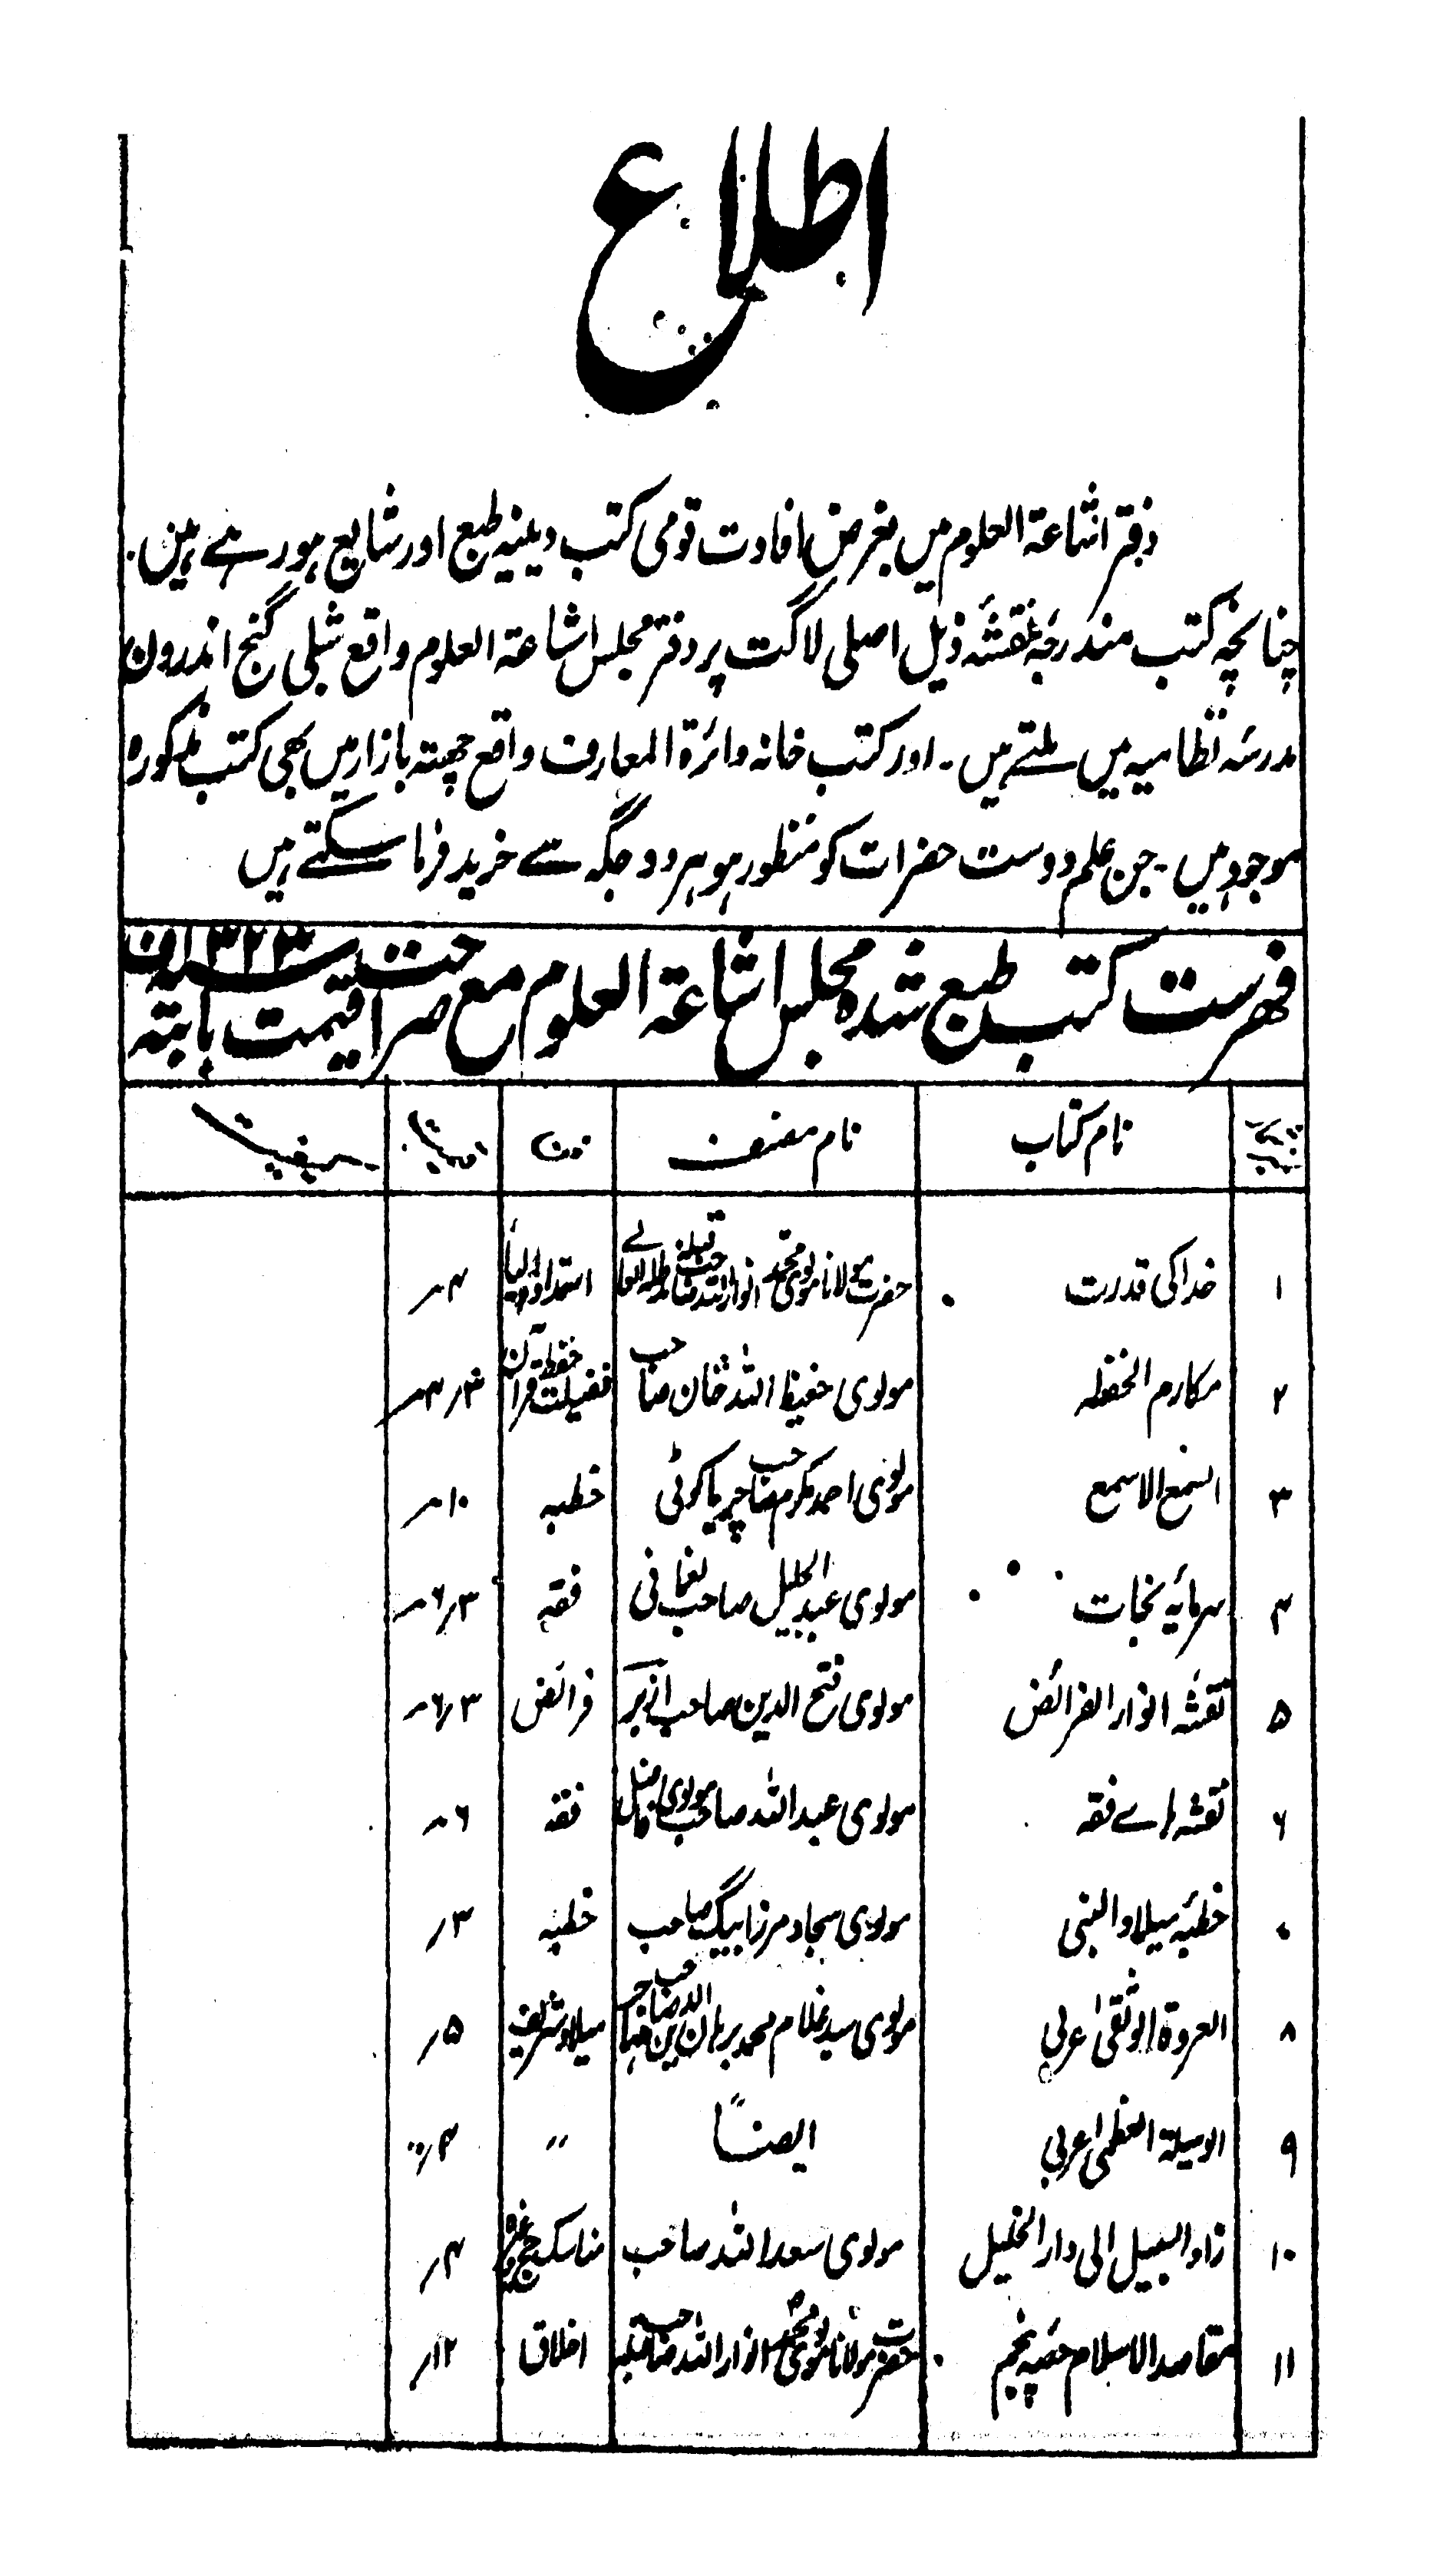 اطلاع
دفتر اشاعۃ العلوم میں بغرض افادت قومی کتب دینیہ طبع اور شایع ہو رہے ہین۔
چنانچہ کتب مندرجۂ نقشۂ ذیل اصلی لاگت پر دفتر مجلس اشاعۃ العلوم واقع شبلی گنج اندرون
مدرسۂ نظامیہ میں ملتے ہیں۔ اور کتب خانہ دائرۃ المعارف واقع چھتہ بازار میں بھی کتب مذکورہ
موجود ہیں۔ جن علم دوست حضرات کو منظور ہو ہر دو جگہ سے خرید فرما سکتے ہیں
فہرست کتب طبع شدہ مجلس اشاعۃ العلوم مع صراحت قیمت بابتہ ۱۳۲۳ف
نام کتاب نام مصنف فن قیمت کیفیت
۱ خدا کی قدرت حضرت مولانا مولوی محمد انوار اللہ صاحب قبلہ استمداد اولیا ۴؍
۲ مکارم الحفظہ مولوی حفیظ اللہ خان صاحب فضیلت حفظ قرآن
۳ السمع الاسمع مولوی احمد مکرم صاحب چریاکوٹی خطبہ ۱۰؍
۴ سرمایۂ نجات مولوی عبد الجلیل صاحب نعمانی فقہ ۳؍۶
۵ نقشہ انوار الفرائض مولوی فتح الدین صاحب ازبر فرائض ۳؍۶
۶ نقشہ ہاے فقہ مولوی عبد اللہ صاحب مولوی فاضل فقہ ۶؍
۷ خطبۂ میلاد النبی مولوی سجاد مرزا بیگ صاحب خطبہ ۳؍
۸ العروۃ الوثقیٰ عربی مولوی سید غلام محمد برہان الدین صاحب میلاد شریف ۵؍
۹ الوسیلۃ العظمیٰ عربی ایضاً ״ ۴؍
۱۰ زاد السبیل الی دار الخلیل مولوی سعد اللہ صاحب مناسک حج وعمرہ ۴؍
۱۱ مقاصد الاسلام حصہ پنجم حضرت مولانا مولوی محمد انوار اللہ صاحب قبلہ اخلاق ۱۲؍